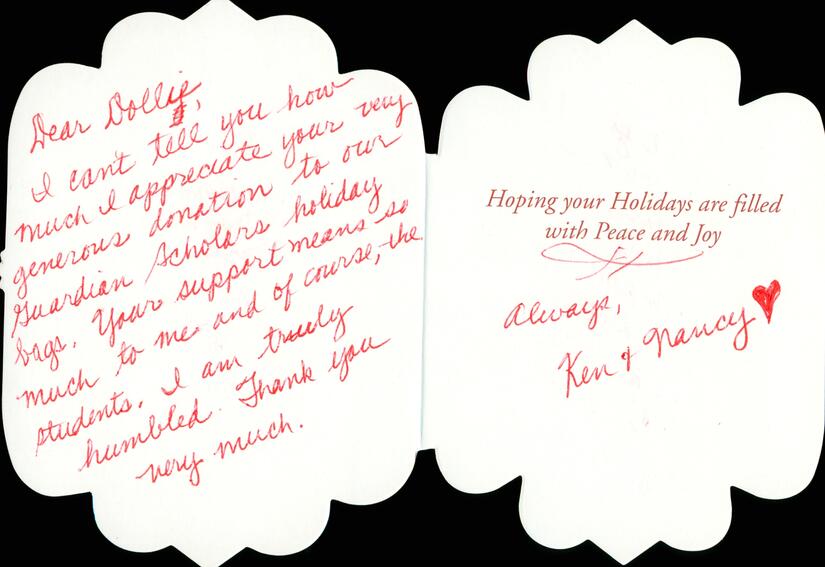 Dear Dollie,
I can't tell you how
much I appreciate your very
generous donation to our
Guardian Scholars holiday
bags. Your support means so
much to me and of course, the
students. I am truly
humbled. Thank you
very much.
Hoping your Holidays are filled
with Peace and Joy
Always,
Ken & Nancy